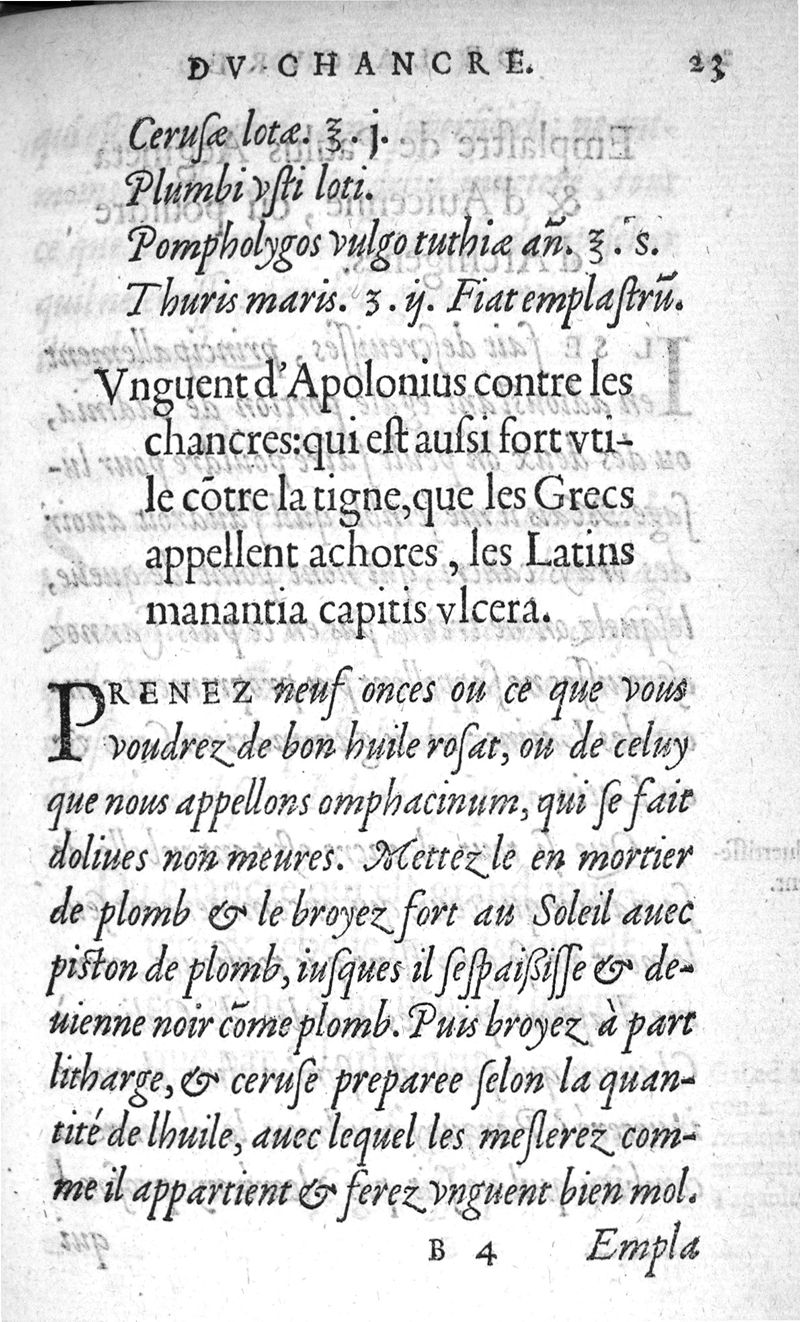 DV CHANCRE. 23
Ceruſæ lotæ. ℥. j.
Plumbi vſti loti.
Pompholygos vulgo tuthiæ añ. ℥. s.
Thuris maris. ʒ. ij. Fiat emplaſtrũ.
Vnguent d'Apolonius contre les
chancres: qui eſt auſsi fort vti-
le cõtre la tigne, que les Grecs
appellent achores, les Latins
manantia capitis vlcera.
PRENEZ neuf onces ou ce que vous
voudrez de bon huile roſat, ou de celuy
que nous appellons omphacinum, qui ſe fait
doliues non meures. Mettez le en mortier
de plomb & le broyez fort au Soleil auec
piſton de plomb, iuſques il ſeſpaiſſiſſe & de-
uienne noir cõme plomb. Puis broyez à part
litharge, & ceruſe preparee ſelon la quan-
tité de lhuile, auec lequel les meſlerez com-
me il appartient & ferez vnguent bien mol.
B 4 Empla